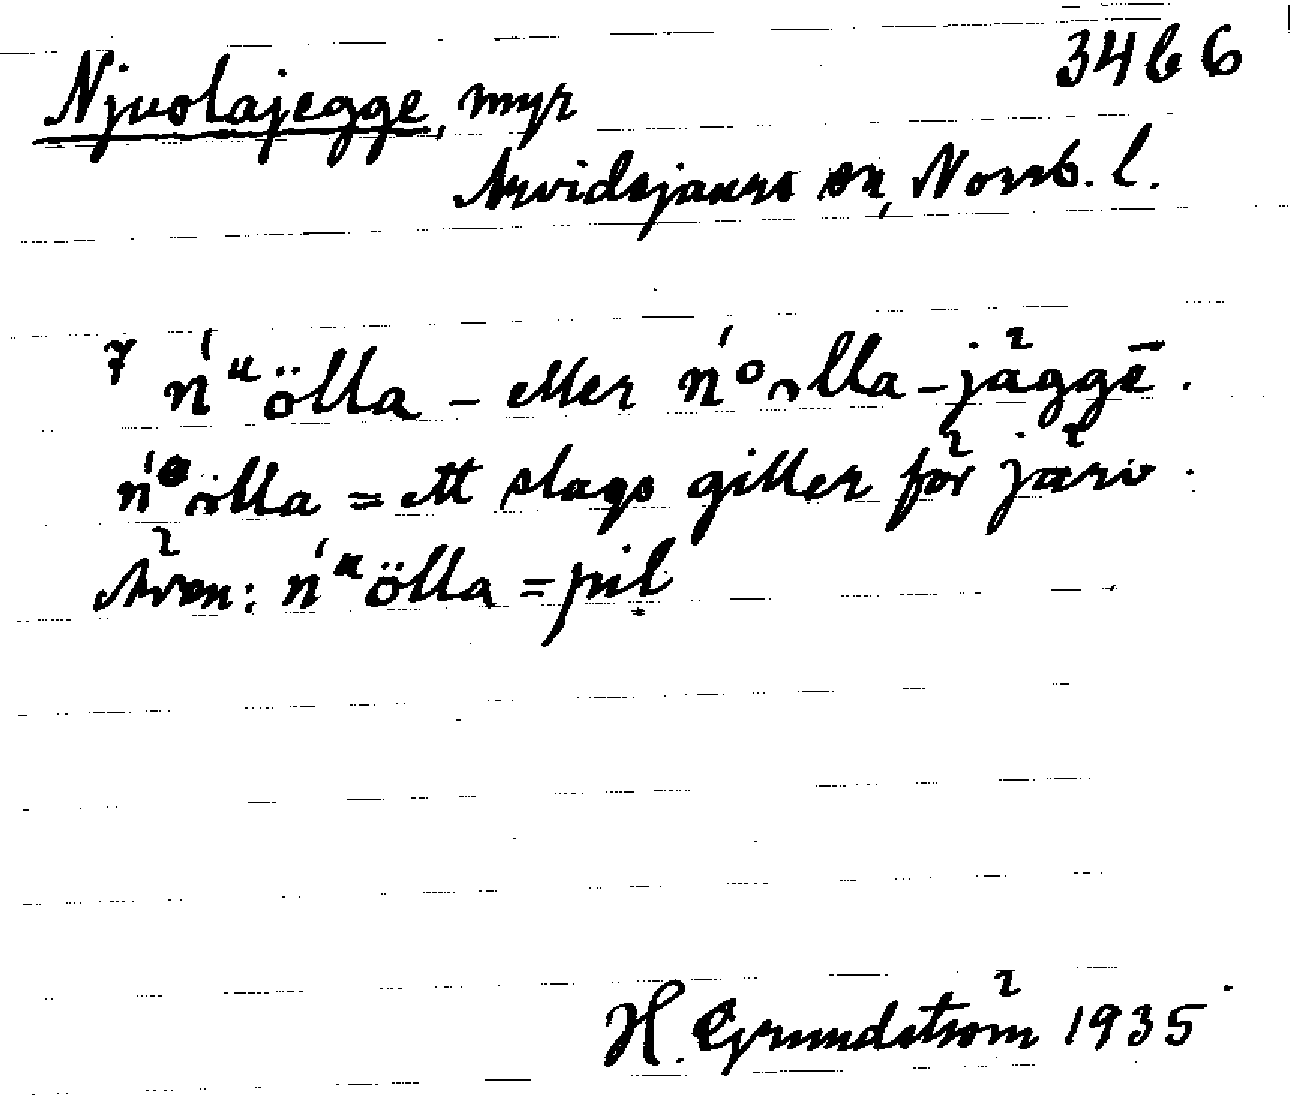 3466
Njuolajegge, myr
Arvidsjaurs sn, Norrb. l.
7 ń ᵘölla – eller ń ᵒo̤lla – jäggē.
ń ᵒölla = ett slags giller för järv.
Även: ń ᵘölla = pil
H. Grundström 1935